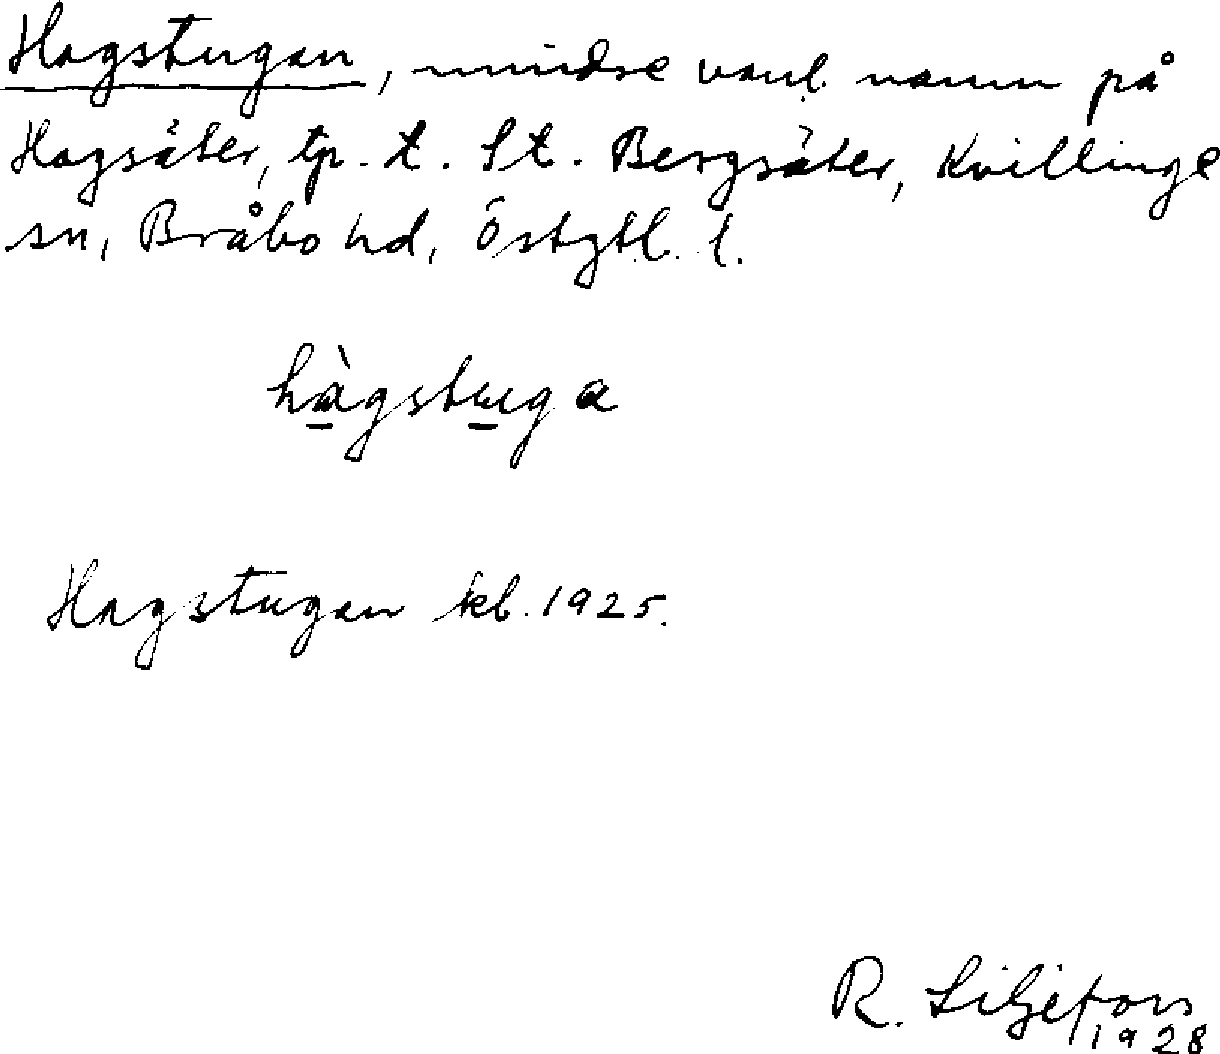 Hagstugan, mindre vanl. namn på
Hagsäter, tp. t. St. Bergsäter, Kvillinge
sn, Bråbo hd, Östgtl. l.
hàgstuga
Hagstugan kb. 1925.
R. Liljefors
1928